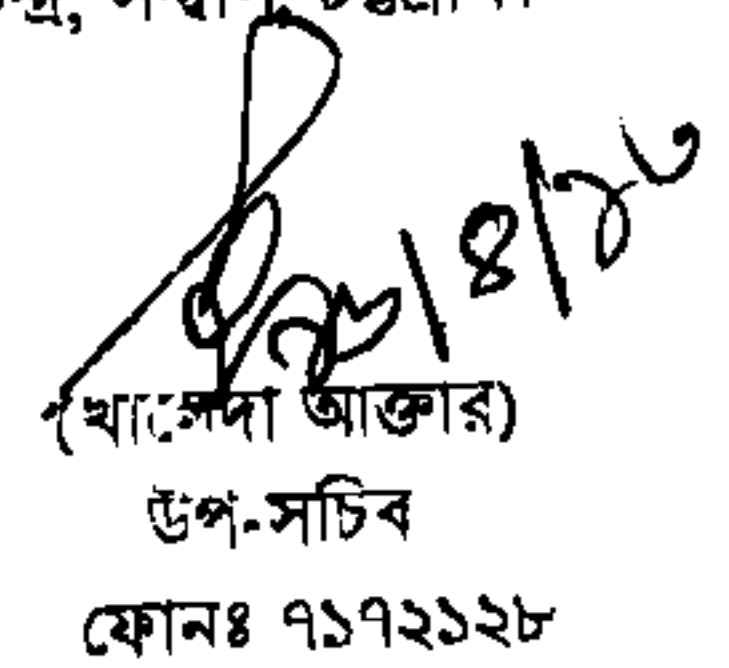 /৪/১৩
(খালেদা আক্তার)
উপ-সচিব
ফোনঃ ৭১৭২১২৮